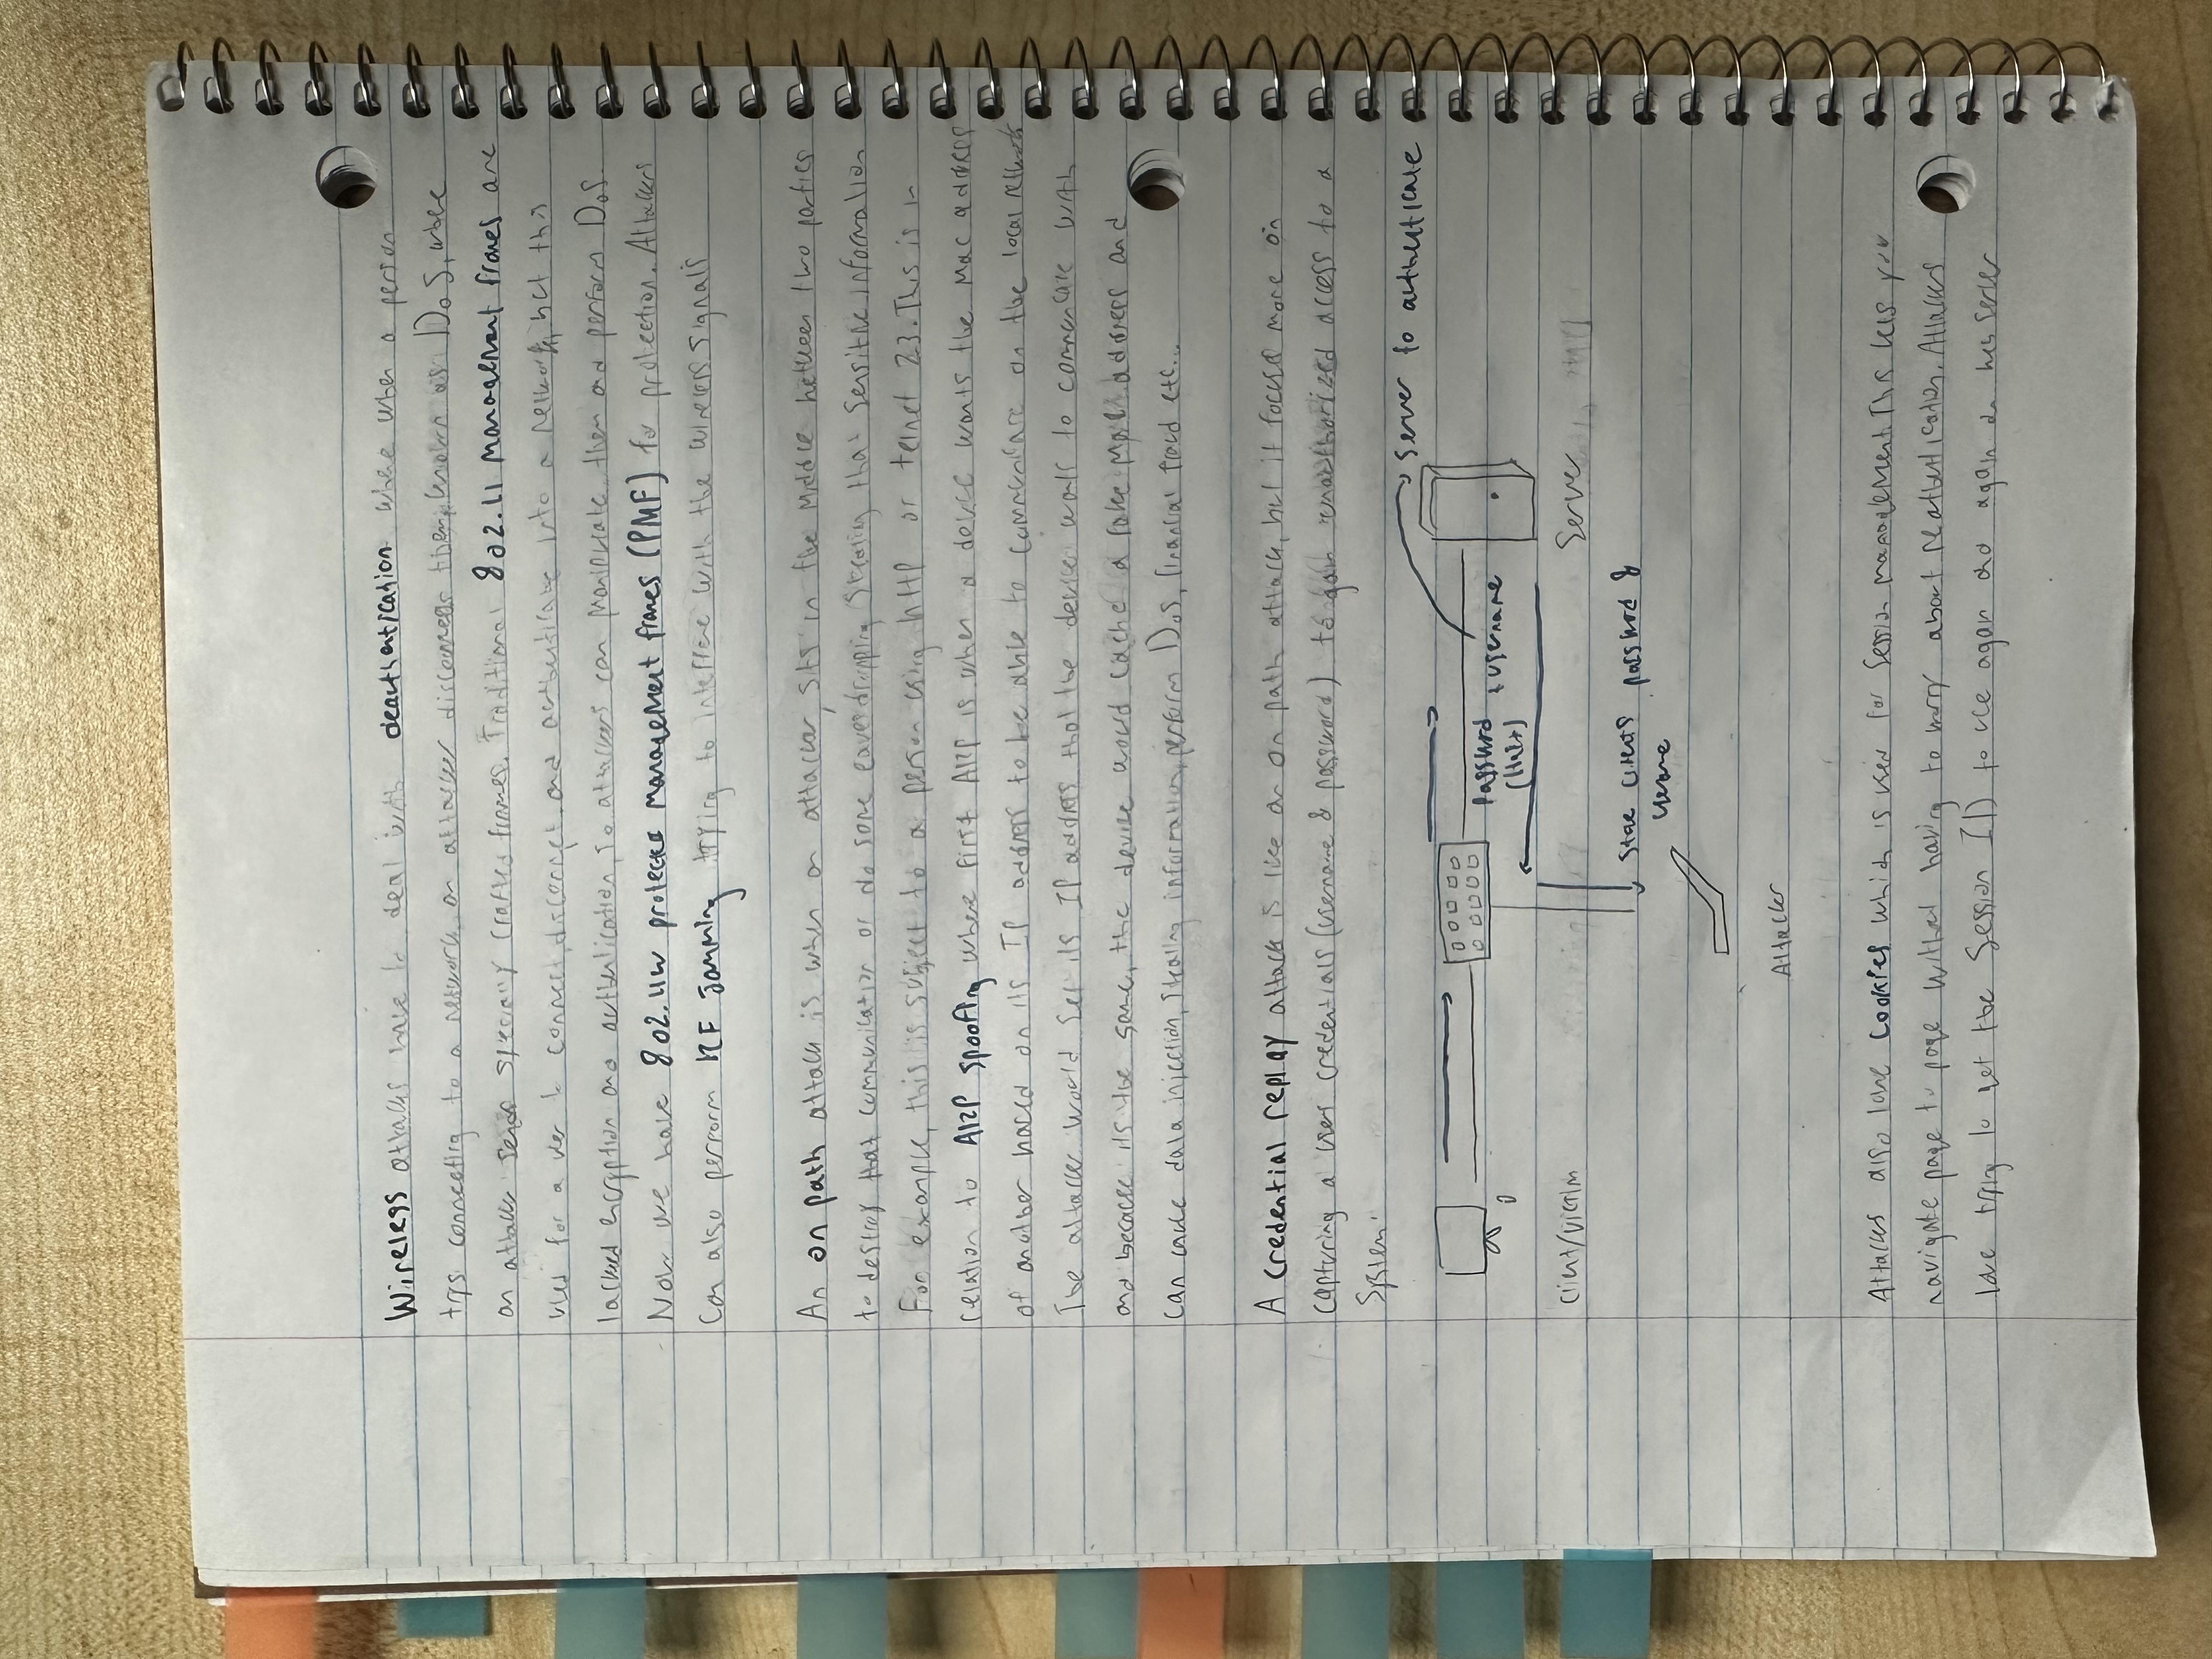 Wireless attacks have to deal with deauthentication where when a person
trys connecting to a network, an attacker disconnects them, known as DoS, where
an attacker sends specially crafted frames. Traditional 802.11 Management frames are
used for a user to connect, disconnect, and authenticate into a network, but this
lacked encryption and authentication, so attackers can manipulate them and perform DoS.
Now we have 802.11w protected Management frames (PMF) for protection. Attackers
can also perform RF Jamming trying to interfere with the wireless signals
An on path attack is when an attacker, sits in the middle between two parties
to destroy that communication or do some eavesdropping stealing that sensitive information
For example, this is subject to a person using http or telnet 23. This is in
relation to ARP spoofing where first ARP is when a device wants the Mac address
of another based on its IP address to be able to communicate on the local network
The attacker would set its IP address that the device wants to communicate with
and because its the same, the device would cache a fake Mac address and
can cause data injection, stealing information, perform DoS, financial fraud etc...
A credential replay attack is like an on path attack, but it focused more on
capturing a users credentials (username & password) to gain unauthorized access to a
System.
Server to authenticate
Password + username
Client/victim
Server
Client's password &
Attacker
Attackers also love Cookies which is used for Session management. This lets you
navigate page to page without having to worry about reauthentication. Attackers
love trying to get the Session ID to use again and again on web server